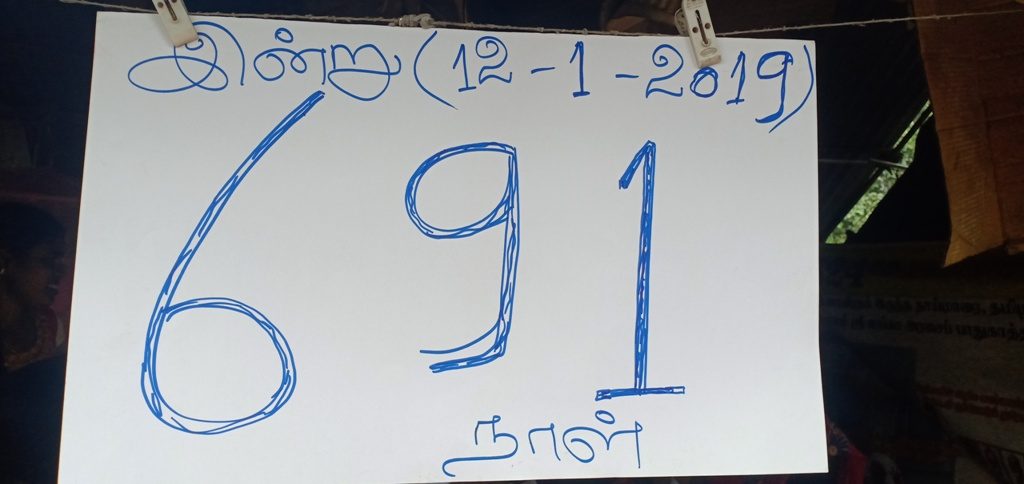 இன்று (12-1-2019)
691
நாள்